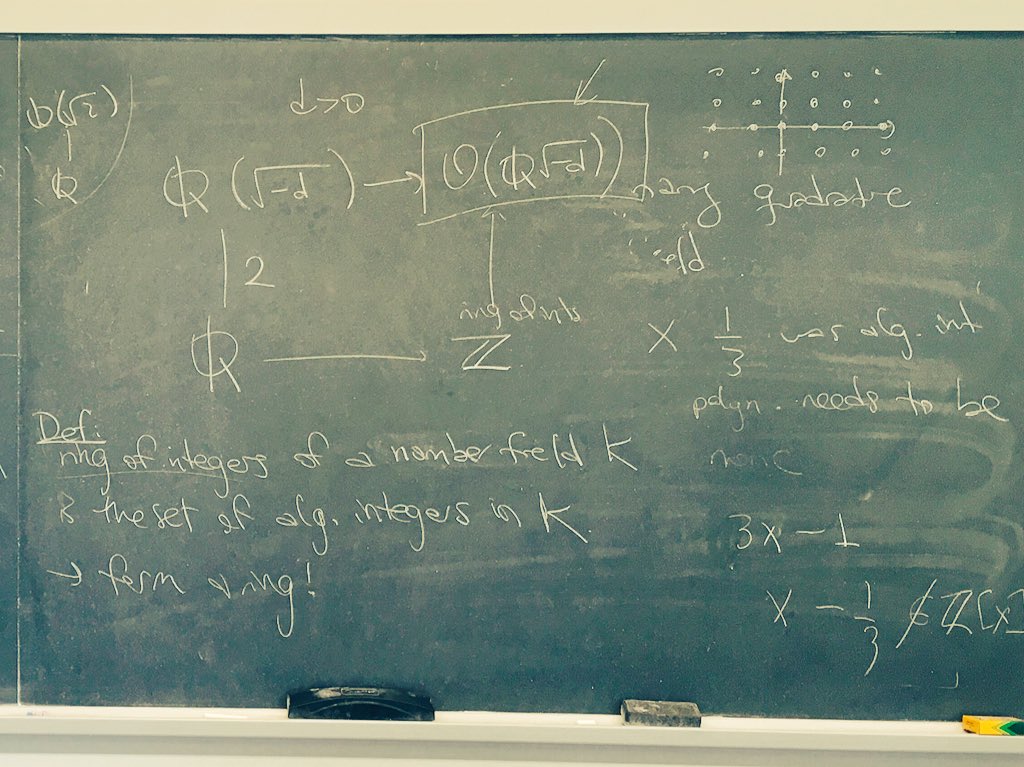 Q(√2)
Q
d>0
Q(√-d) → O(Q√-d))
imag quadratic
field
2
ring of ints
Q → Z
X 1/3 was alg. int
polyn. needs to be
monic
Def:
ring of integers of a number field K
is the set of alg. integers in K.
→ form a ring!
3x - 1
x - 1/3 ∉ Z[x]